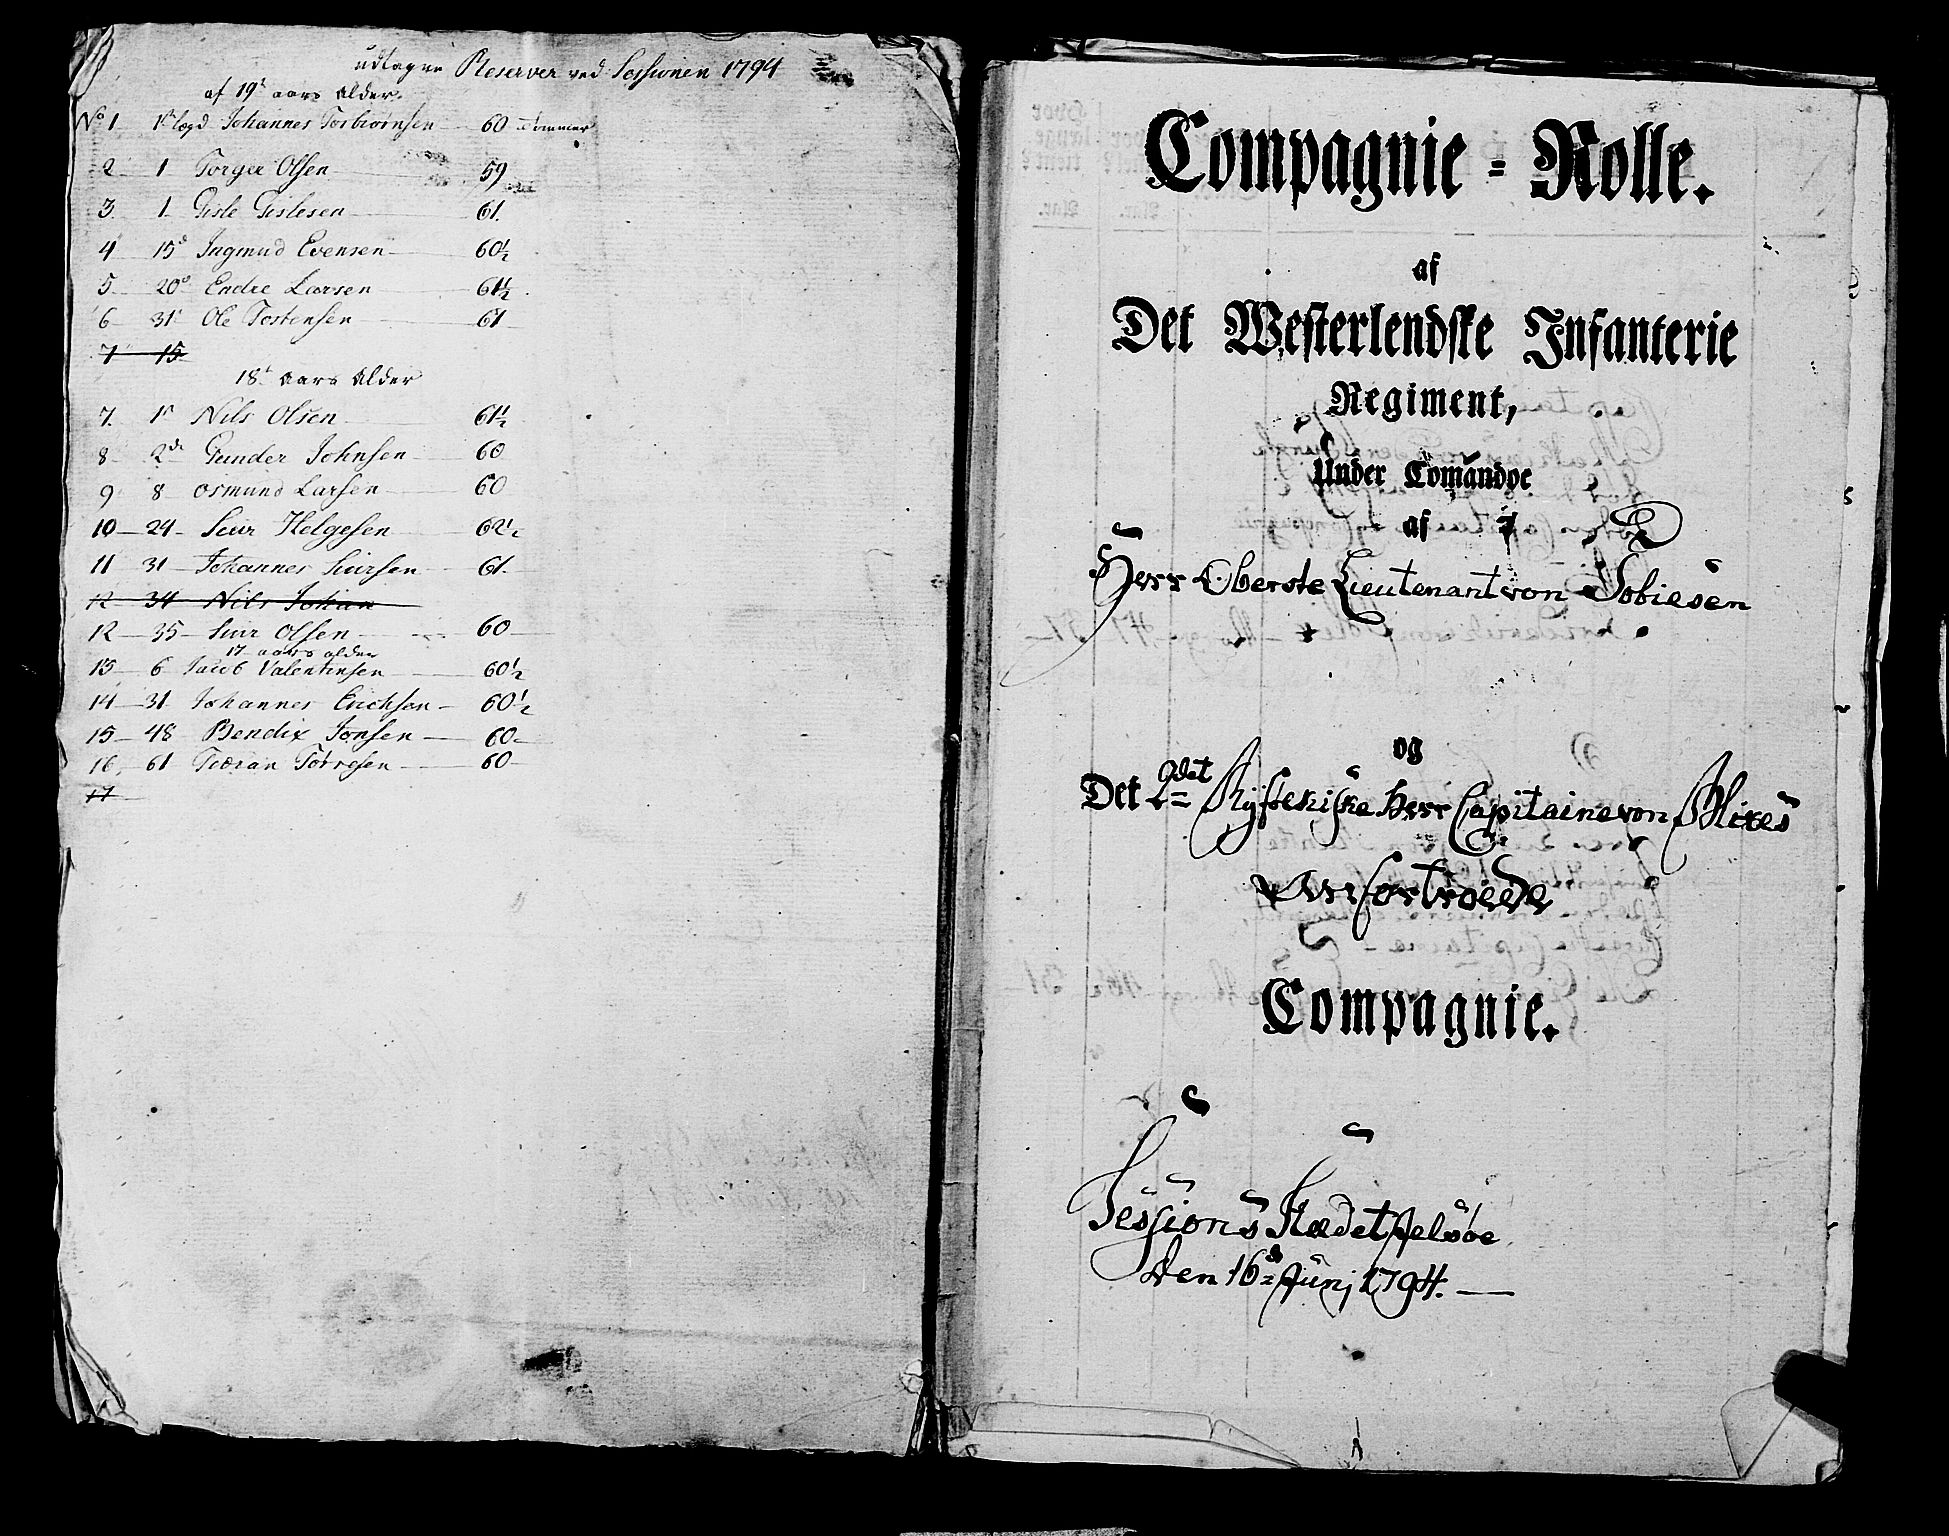 udtagne Reserver ved Sessionen 1794
af 19de aars Alder
No 1 1ste lægd Johannes Torbiørnsen 60 Tommer
2 1 Torger Olsen 59
3. 1 Gisle Gislesen 61.
4 15d Ingmund Evensen 60½
5 20d Endre Larsen 61½
6 31 Ole Tostensen 61
7 15
18de Aars Alder
7. 1 Nils Olsen 61½
8 2de Gunder Johnsen 60
9 8 Osmund Larsen 60
10 24 Siur Helgesen 62½
11 31 Johannes Siursen 61.
12 34 Nils Johan
12 35 Siur Olsen 60
17 aars alder
13 6 Jacob Valentinsen 60½
14 31 Johannes Erichsen 60½
15 48 Bendix Jonsen 60
16. 61 Giøran Tørresen 60
17
Compagnie = Rolle.
af
Det Westerlendske Infanterie
Regiment,
Under Comandoe
af
Herr Oberste Lieutenant von Tobiesen
og
Det 2det Ryfylkiske Herr Capitaine von
Anfortroede
Compagnie.
Sessions Stædet Jelsøe
Den 16de Junj 1794.